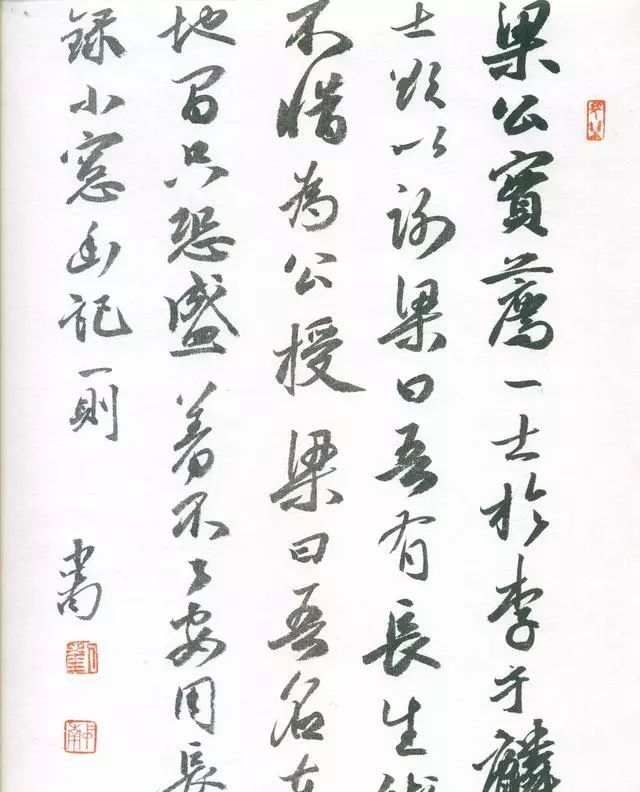 梁公實薦一士於李于麟
士欲以謝梁曰吾有長生術
不惜為公授梁曰吾名在
地間只恐盛着不了安用長
錄小窓幽記一則